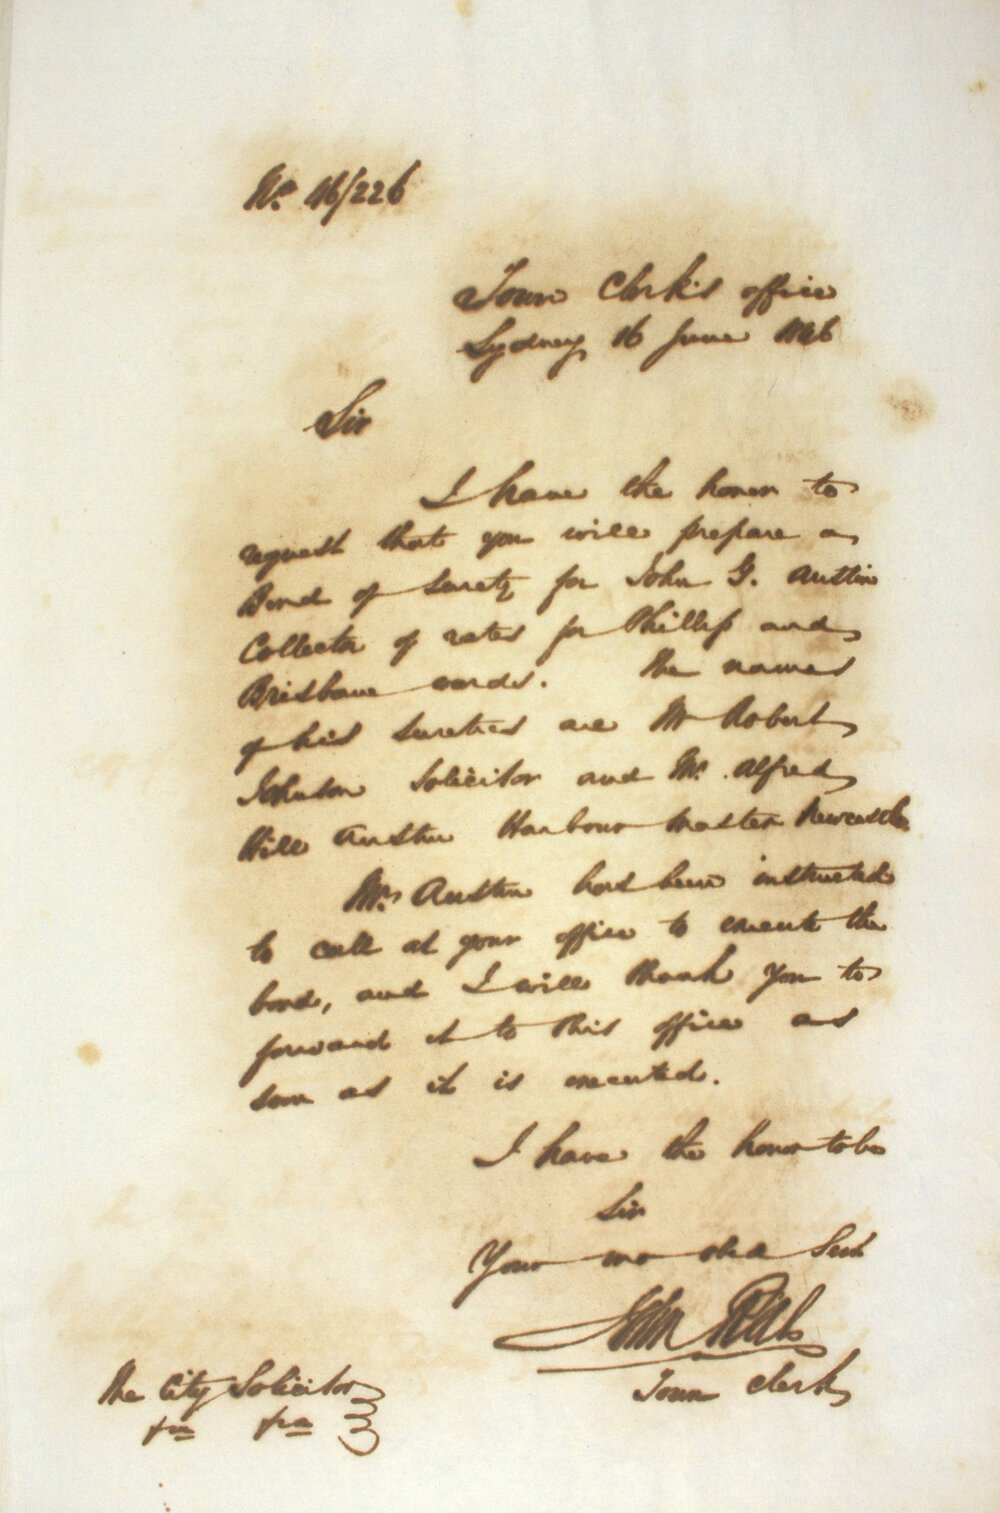 No. 46/226
Town Clerk's office
Sydney 16 June 1846
Sir
I have the honor to
request that you will prepare a
Bond of surety for John G. Austin
Collector of rates for Phillip and
Brisbane wards. The names
of his sureties are Mr Robert
Johnson Solicitor and Mr. Alfred
Hill Austin Harbour Master Newcastle
Mr. Austin has been instructed
to call at your office to execute the
bond, and I will thank you to
forward it to this office as
soon as it is executed.
I have the honor to be
Sir
Your mo obed Servt
John
Town Clerk
The City Solicitor